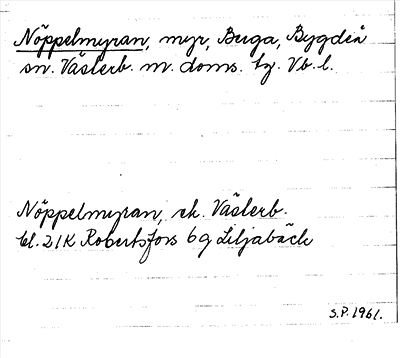 Nöppelmyran, myr, Berga, Bygdeå
sn. Västerb. m. doms. bg. Vb. l.
Nöppelmyran, ek. Västerb.
bl. 21K Robertsfors 6g Liljabäck
S.P. 1961.